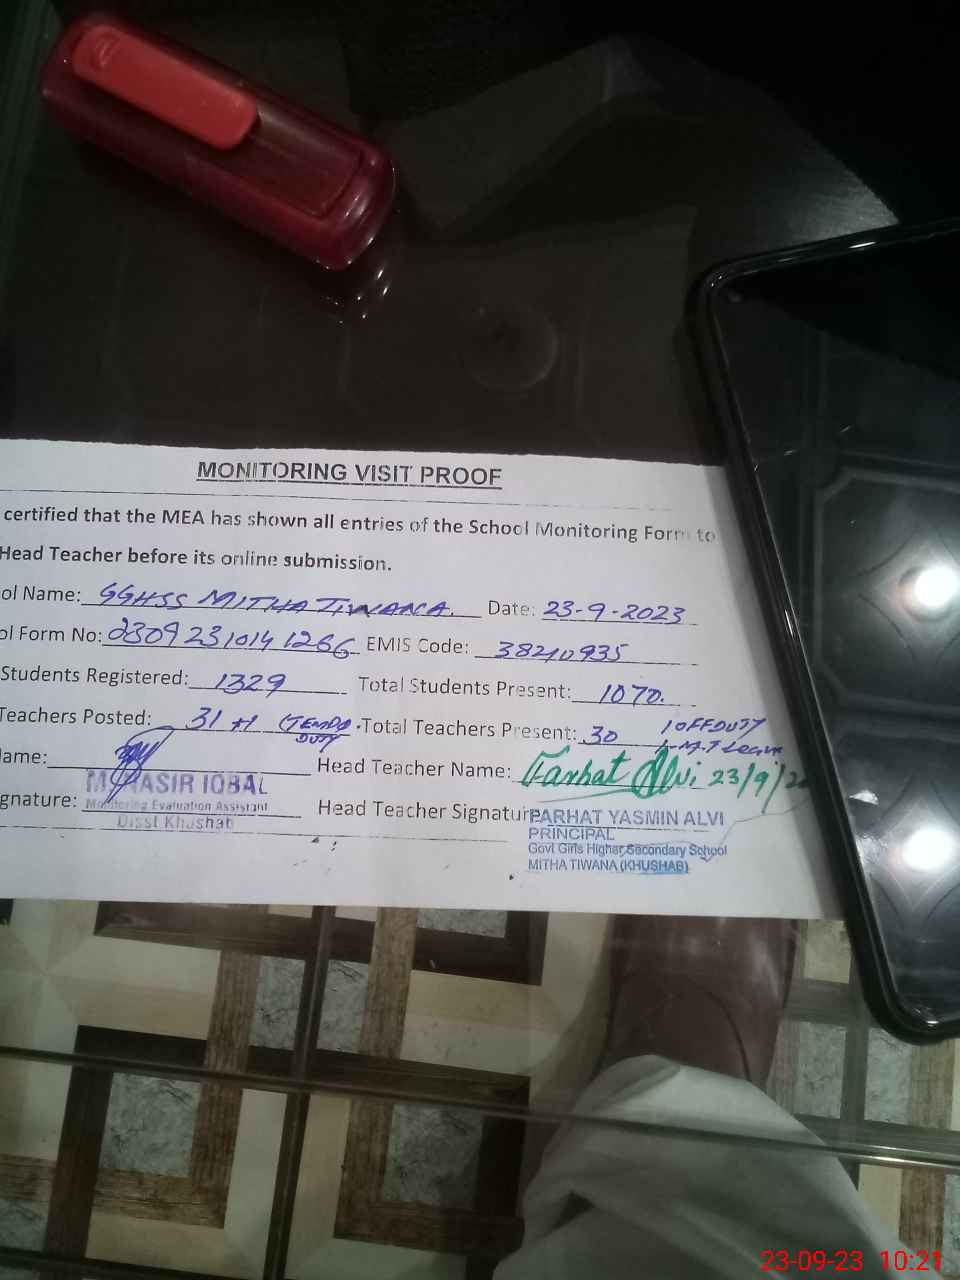 MONITORING VISIT PROOF
certified that the MEA has shown all entries of the School Monitoring Form to
Head Teacher before its online submission.
ol Name: GGHSS MITHA TIWANA. Date: 23-9-2023
ol Form No: 2309231014 1266 EMIS Code: 38210935
Students Registered: 1329 Total Students Present: 1070.
Teachers Posted: 31 +1 (TEMP. DUTY Total Teachers Present: 30 1 OFF DUTY
1-M.T Leave
ame: Head Teacher Name: Farhat Alvi 23/9/20
ASIR IQBAL
gnature: Monitoring Evaluation Assistant Head Teacher Signature
Disst Khushab
FARHAT YASMIN ALVI
PRINCIPAL
Govt Girls Higher Secondary School
MITHA TIWANA (KHUSHAB)
23-09-23 10:21